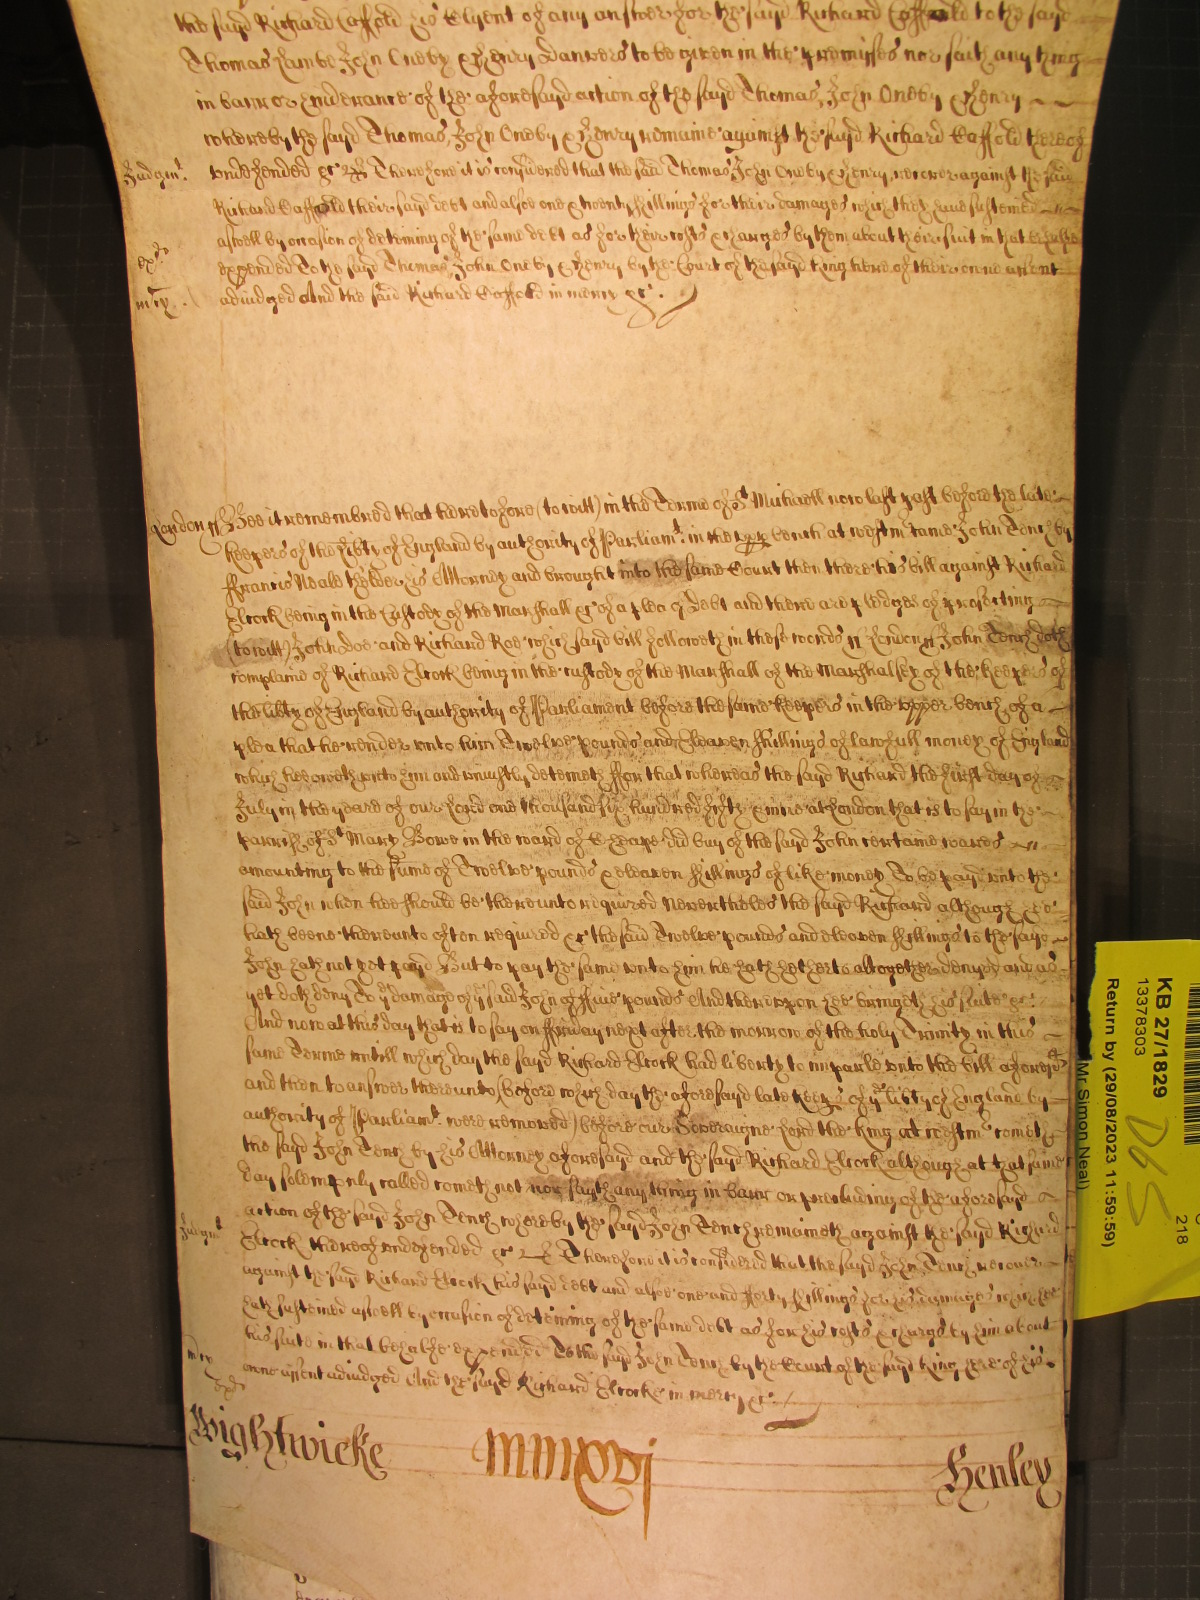 the sayd Richard Caffold his Clyent of any answer for the sayd Richard Caffold to the sayd
Thomas Lambe John Oneby & Henry Danvers to be given in the premisses nor saith any thing
in barr or hinderance of the aforesayd action of the sayd Thomas, John Oneby & Henry
whereby the sayd Thomas, John Oneby & Henry remaine against the sayd Richard Caffold thereof
Judgmt. undefended &c Therefore it is considered that the said Thomas John Oneby & Henry, recover against the said
Richard Caffold their sayd debt and alsoe one & twenty shillings for their damages which they have susteined
aswell by occasion of deteining of the same debt as for their costs & charges by them about their suit in that behalfe
expended To the sayd Thomas, John Oneby & Henry by the Court of the sayd King here of their owne assent
adjudged And the said Richard Caffold in mercy &c.
London ss Bee it remembred that heretofore (to witt) in the Terme of St Michaell now last past before the late
keepers of the libty of England by authority of Parliamt. in the upp bench at westm came John Tench by
ffrancis Neale his Attorney and brought into the same Court then there his bill against Richard
Elcock being in the Custody of the Marshall &c of a plea of debt and there are pledges of prosecuting
(to witt) John Doe and Richard Roe which sayd bill followeth in these words ss London ss John Tench doth
complaine of Richard Elcock being in the custody of the Marshall of the Marshalsey of the keepers of
the libty of England by authority of Parliament before the same keepers in the upper bench of a
plea that he render unto him Twelve pounds and Eleaven shillings of lawfull money of England
which hee oweth unto him and uniustly deteineth ffor that whereas the sayd Richard the first day of
July in the yeare of our Lord one thousand six hundred fifty & nine at London that is to say in the
parrish of St Mary Bowe in the ward of Cheape did buy of the sayd John certaine wares
amounting to the sume of Twelve pounds & eleaven shillings of like money To be payd unto the
said John when hee should be thereunto required Neverthelesse the sayd Richard although he
hath beene thereunto often required &c the said Twelve pounds and eleaven shillings to the sayd
John hath not yet payd But to pay the same unto him he hath hetherto altogether denyed and as
yet doth deny To ye damage of ye said John of ffive pounds And thereupon hee bringeth his suite &c.
And now at this day that is to say on ffriday next after the morrow of the holy Trinity in this
same Terme untill which day the sayd Richard Elcock had liberty to imparle unto the bill aforesd
and then to answer thereunto, (before which day the aforesayd late keeps of ye libty of England by
authority of Parliamt. were removed) before our Soveraigne Lord the King at westmr cometh
the sayd John Tench by his Attorney aforesayd and the sayd Richard Elcock although at that same
day solempnly called cometh not nor sayth any thing in barr or precluding of the aforesayd
action of the sayd John Tench whereby the sayd John Tench remaineth against the sayd Richard
Judgmt Elcock thereof undefended &c Therefore it is considered that the sayd John Tench recover
against the sayd Richard Elcock his sayd debt and alsoe one and fforty shillings for his damages which hee
hath susteined aswell by occasion of deteining of the same debt as for his costs & charges by him about
his suite in that behalfe expended To the sayd John Tench by the Court of the sayd King here of his
owne assent adjudged And the sayd Richard Elcocke in mercy &c.
Wightwicke
Henley
KB 27/1829
13378303
Return by (29/08/2023 11:59:59)
Mr Simon Neal)
218
D6S